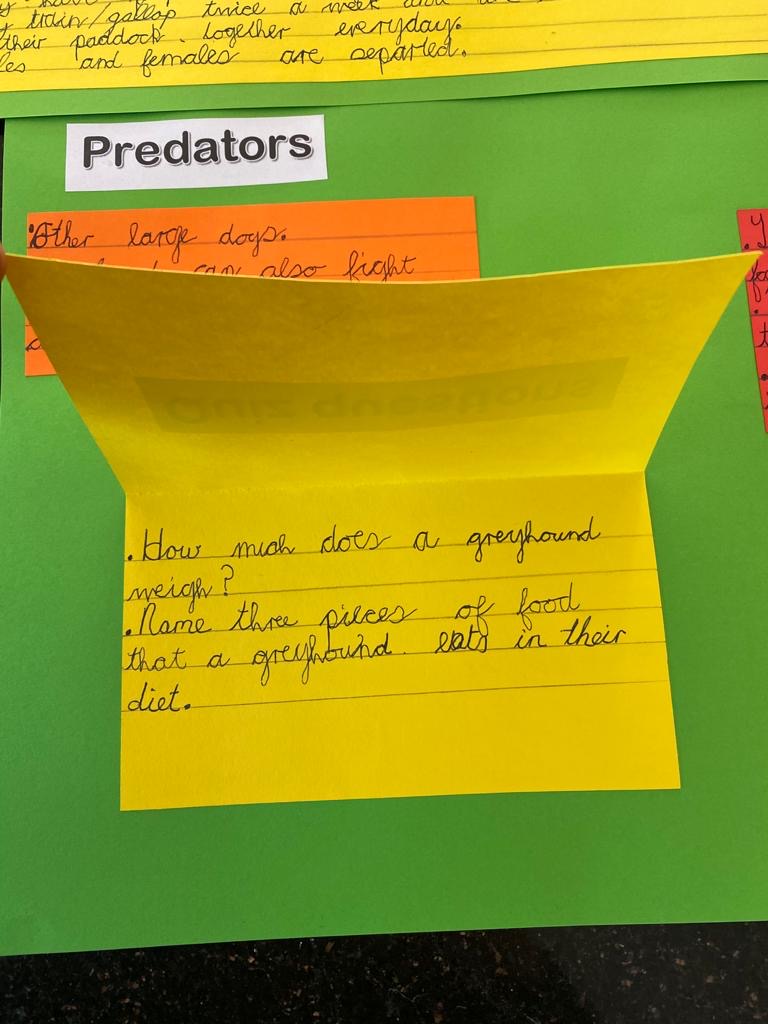 train/gallop twice a week
their paddock together everyday.
and females are separted.
Predators
Other large dogs.
can also fight
Quiz questions
.How much does a greyhound
weigh?
.Name three pieces of food
that a greyhound eats in their
diet.